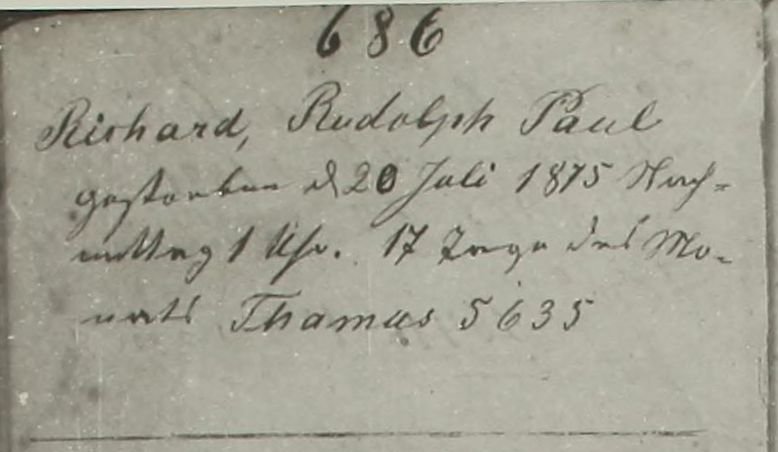 686
Richard, Rudolph Paul
gestorben d 20 Juli 1875 Nach-
mittag 1 Uhr. 17 Tage des Mo-
nats Thamus 5635